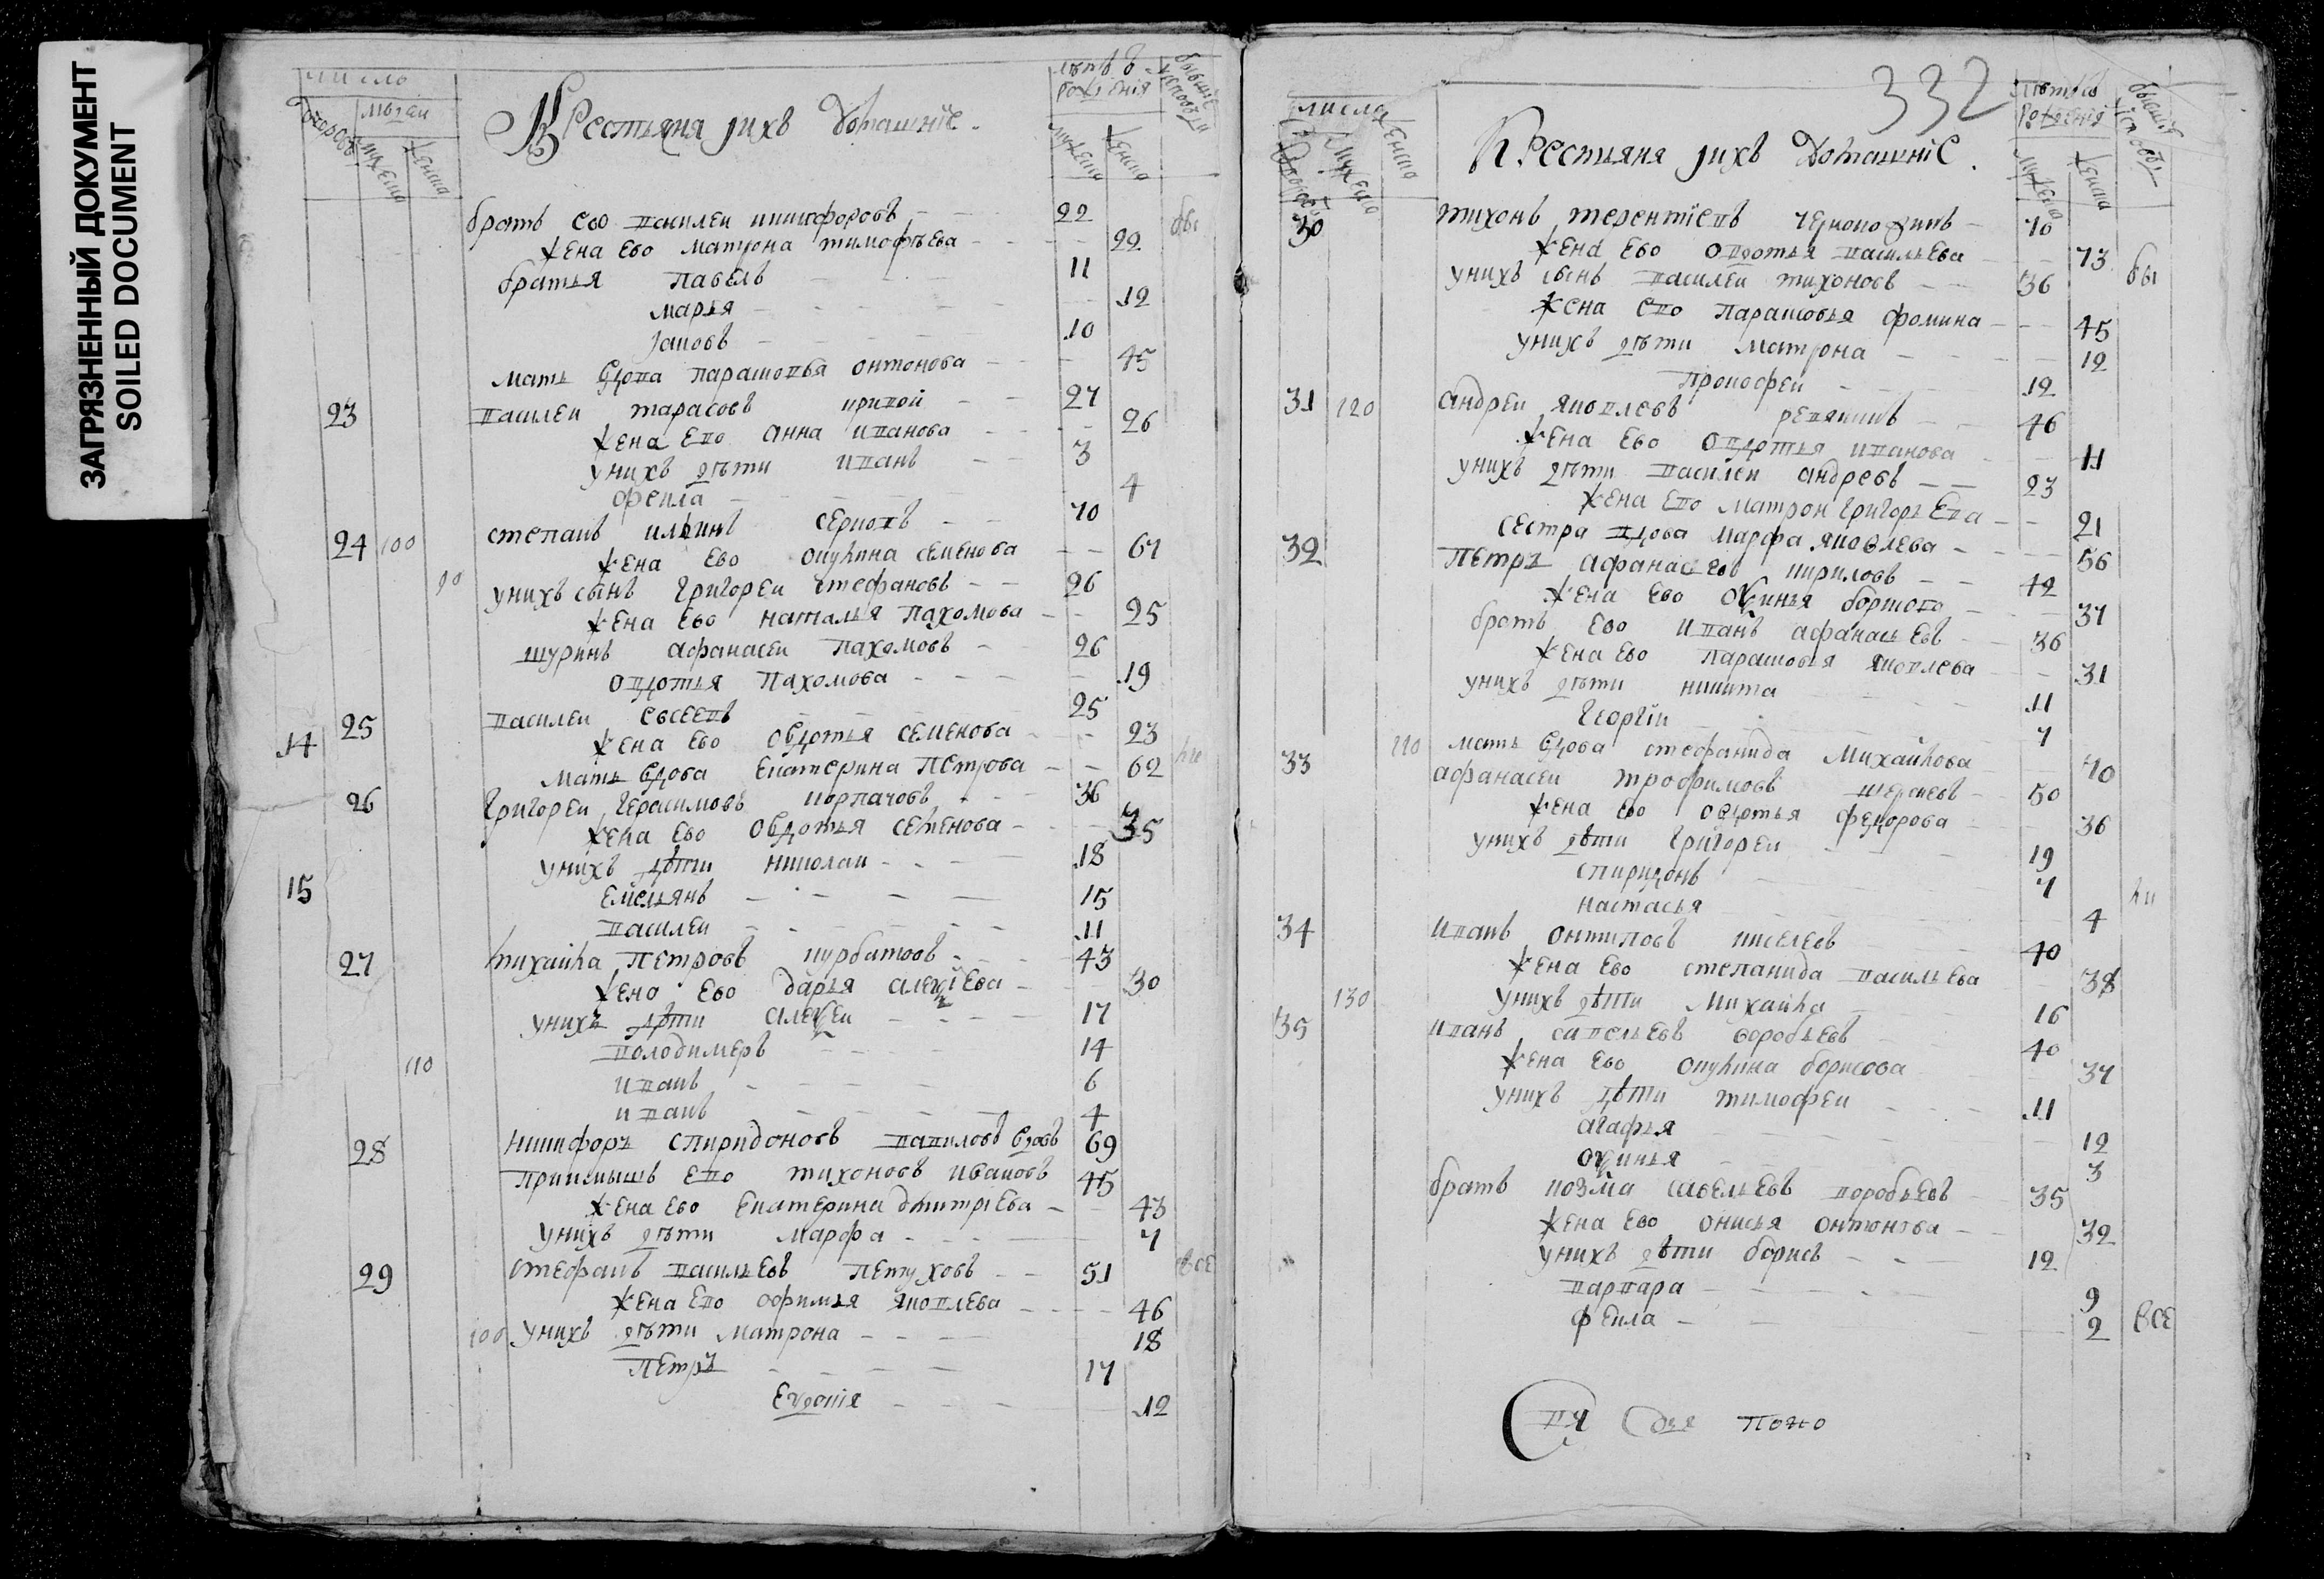 ЗАГРЯЗНЕННЫЙ ДОКУМЕНТ
SOILED DOCUMENT
число
дворовъ
мужеска
женска
Крестьяня ихъ домашнїе
лѣтъ в
рожденїя
мужеска
женска
братъ ево василеи никифоровъ 22 бы
жена ево матрона тимофѣева 22
братья павелъ 11
марья 12
яковъ 10
мать вдова парасковья онтонова 45
23 василеи тарасовъ кривой 27
жена ево анна иванова 26
у нихъ дѣти иванъ 3
фекла 4
24 100 степанъ ильинъ 70
жена ево окулина семенова 67
90 у нихъ сынъ григореи стефановъ 26
жена ево наталья пахомова 25
шуринъ афанасеи пахомовъ 26
овдотья пахомова 19
25 василеи евсеевъ 25
14 жена ево овдотья семенова 23
мать вдова екатерина петрова 62
26 григореи герасимовъ корпачовъ 36
жена ево овдотья семенова 35
у нихъ дѣти николаи 18
15 емельянъ 15
василеи 11
27 михаила петровъ курбатовъ 43
жена ево дарья алексїева 30
у нихъ дѣти алексеи 17
володимеръ 14
110 иванъ 6
иванъ 4
28 никифоръ спиридоновъ вдовъ 69
приимышъ ево тихоновъ ивановъ 45
жена ево екатерина дмитрїева 43
у нихъ дѣти марфа 7
29 стефанъ васильевъ петуховъ 51 все
жена ево офимья яковлева 46
100 у нихъ дѣти матрона 18
петръ 17
12
332
числа
дворовъ
мужеска
женска
Крестьяня ихъ домашнїе
лѣтъ
рожденїя
мужеска
женска
30 тихонъ терентїевъ 70
жена ево овдотья васильева 73
у нихъ сынъ василеи тихоновъ 36 бы
жена ево парасковья фомина 45
у нихъ дѣти матрона 12
прокофеи 12
31 120 андреи яковлевъ репякинъ 46
жена ево овдотья иванова
у нихъ дѣти василеи андреевъ 23
жена ево матрона григорьева 21
сестра вдова марфа яковлева 56
32 петръ афанасьевъ кириловъ 42
жена ево оксинья 37
братъ ево иванъ афанасьевъ 36
жена ево парасковья яковлева 31
у нихъ дѣти никита 11
георгїи 7
110 мать вдова стефанида михаилова 70
33 афанасеи трофимовъ 50
жена ево овдотья федорова 36
у нихъ дѣти григореи 19
спиридонъ 7
настасья 4
34 иванъ онтиповъ киселевъ 40
жена ево степанида васильева 38
130 у нихъ дѣти михаила 16
35 иванъ савельевъ воробьевъ 40
жена ево окулина борисова 37
у нихъ дѣти тимофеи 11
агафья 12
оксинья 3
братъ козма савельевъ воробьевъ 35
жена ево онисья онтонова 32
у нихъ дѣти борисъ 12
варвара 9
фекла 2 все